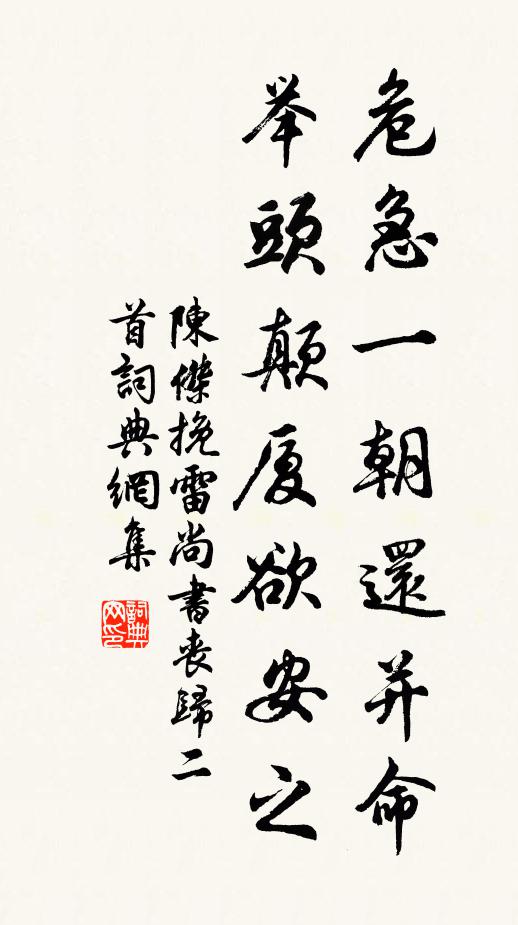 危急一朝還并命
举頭顛厦欲安之
陳傑挽雷尚書丧歸二
首詞典網集
詞典网印